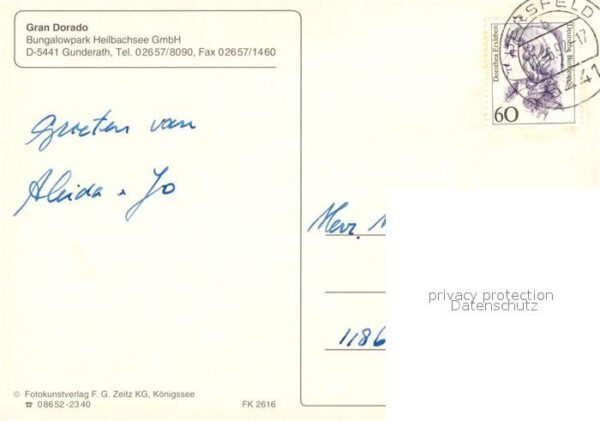 Gran Dorado
Bungalowpark Heilbachsee GmbH
D-5441 Gunderath, Tel. 02657/8090, Fax 02657/1460
Groeten van
Aleida + Jo
HERSFELD
b
-17
41
Dorothea Erxleben
Deutsche Bundespost
60
Mevr.
1186
privacy protection
Datenschutz
© Fotokunstverlag F. G. Zeitz KG, Königssee
☎ 08652-2340
FK 2616